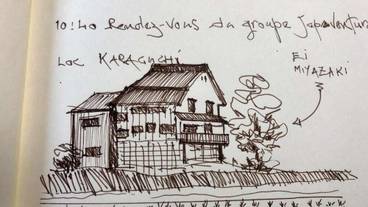 10:40 Rendez-Vous du groupe Japaventura
Loc KARAGUCHI
Ei
MIYAZAKI